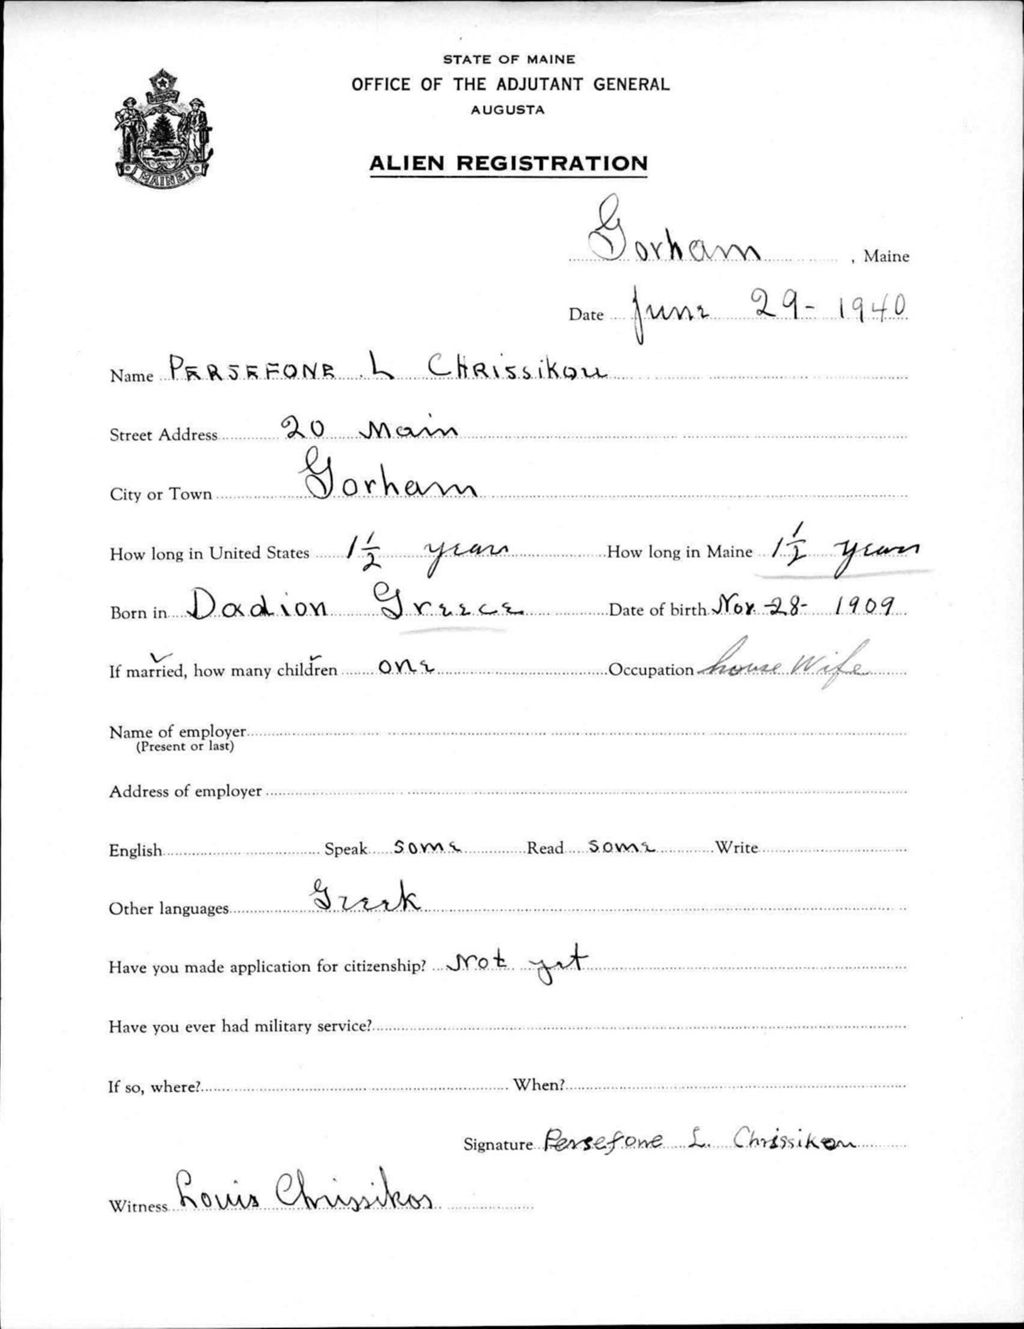 STATE OF MAINE
OFFICE OF THE ADJUTANT GENERAL
AUGUSTA
ALIEN REGISTRATION
MAINE
Gorham, Maine
Date June 29- 1940
Name PERSEFONE L CHRissikou
Street Address 20 Main
City or Town Gorham
How long in United States 1 1/2 years How long in Maine 1 1/2 years
Born in Dadion Greece Date of birth Nov-28- 1909
If married, how many children one Occupation house Wife
Name of employer
(Present or last)
Address of employer
English Speak some Read some Write
Other languages Greek
Have you made application for citizenship? Not yet
Have you ever had military service?
If so, where? When?
Signature Persefone L. Chrissikou
Witness Louis Chrissikos